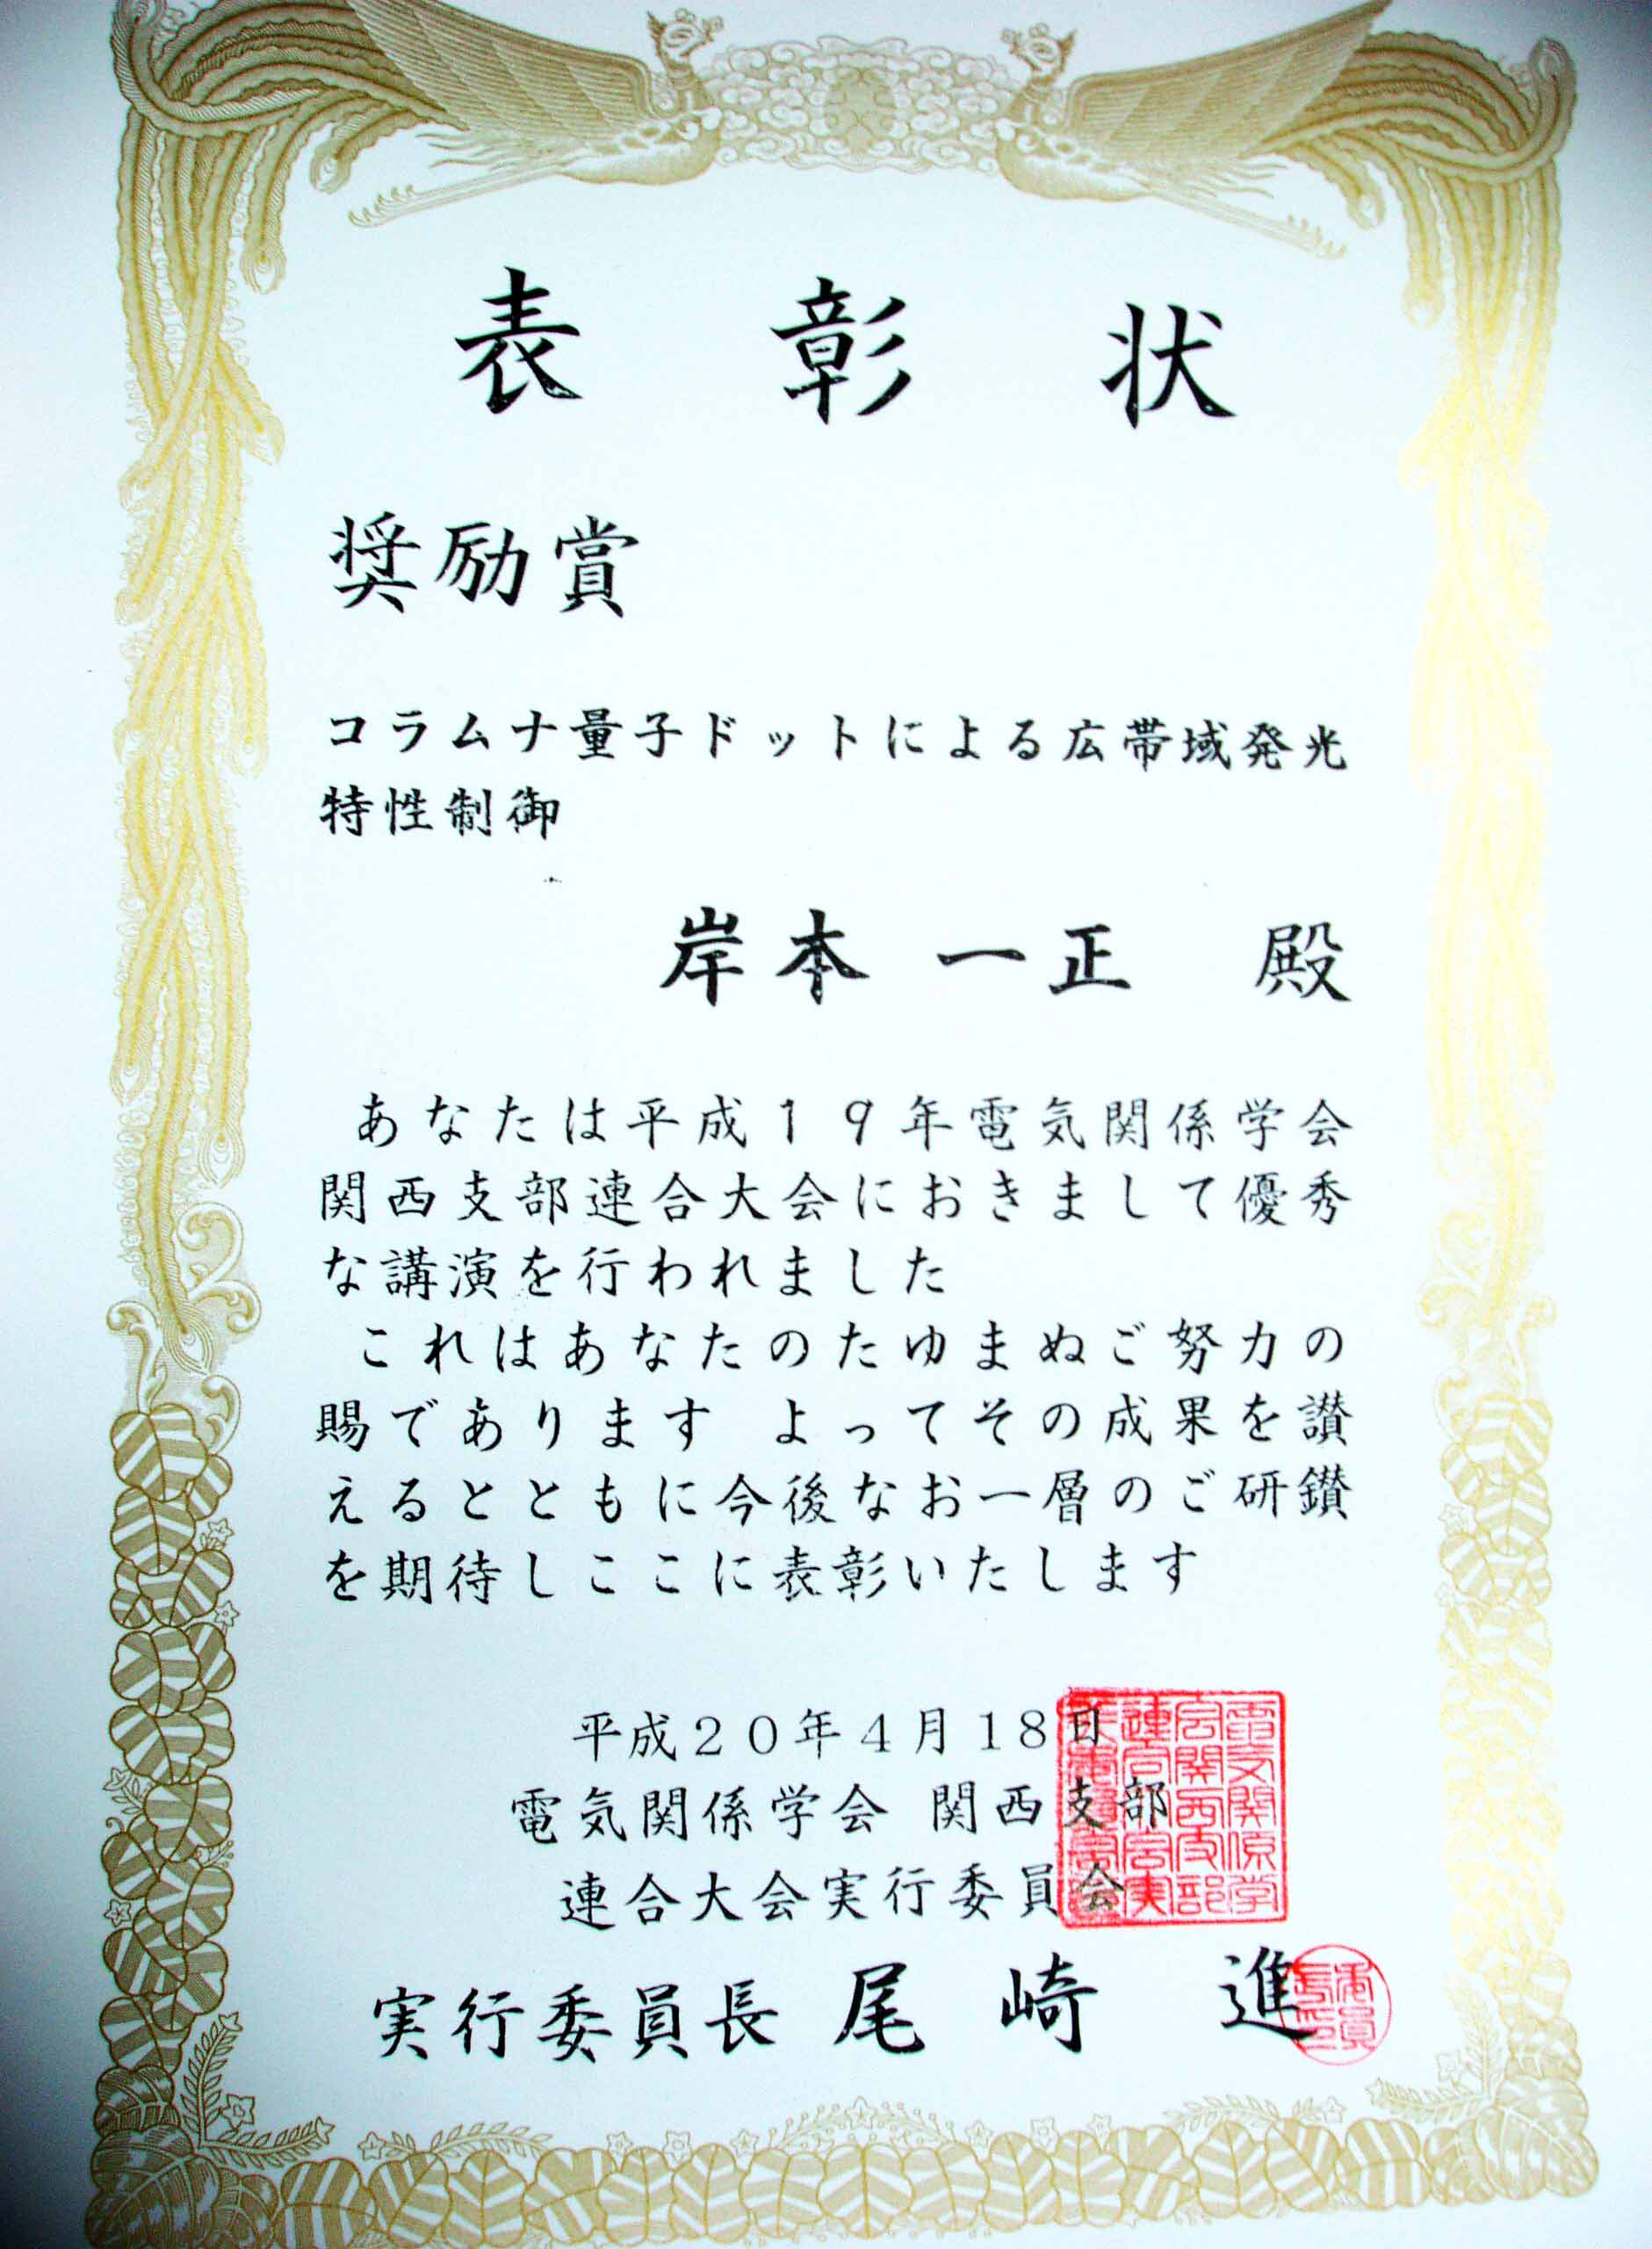 表彰状
奨励賞
コラムナ量子ドットによる広帯域発光
特性制御
岸本 一正 殿
あなたは平成19年電気関係学会
関西支部連合大会におきまして優秀
な講演を行われました
これはあなたのたゆまぬご努力の
賜であります よってその成果を讃
えるとともに今後なお一層のご研鑚
を期待しここに表彰いたします
平成20年4月18日
電気関係学会 関西支部
連合大会実行委員会
実行委員長 尾崎 進